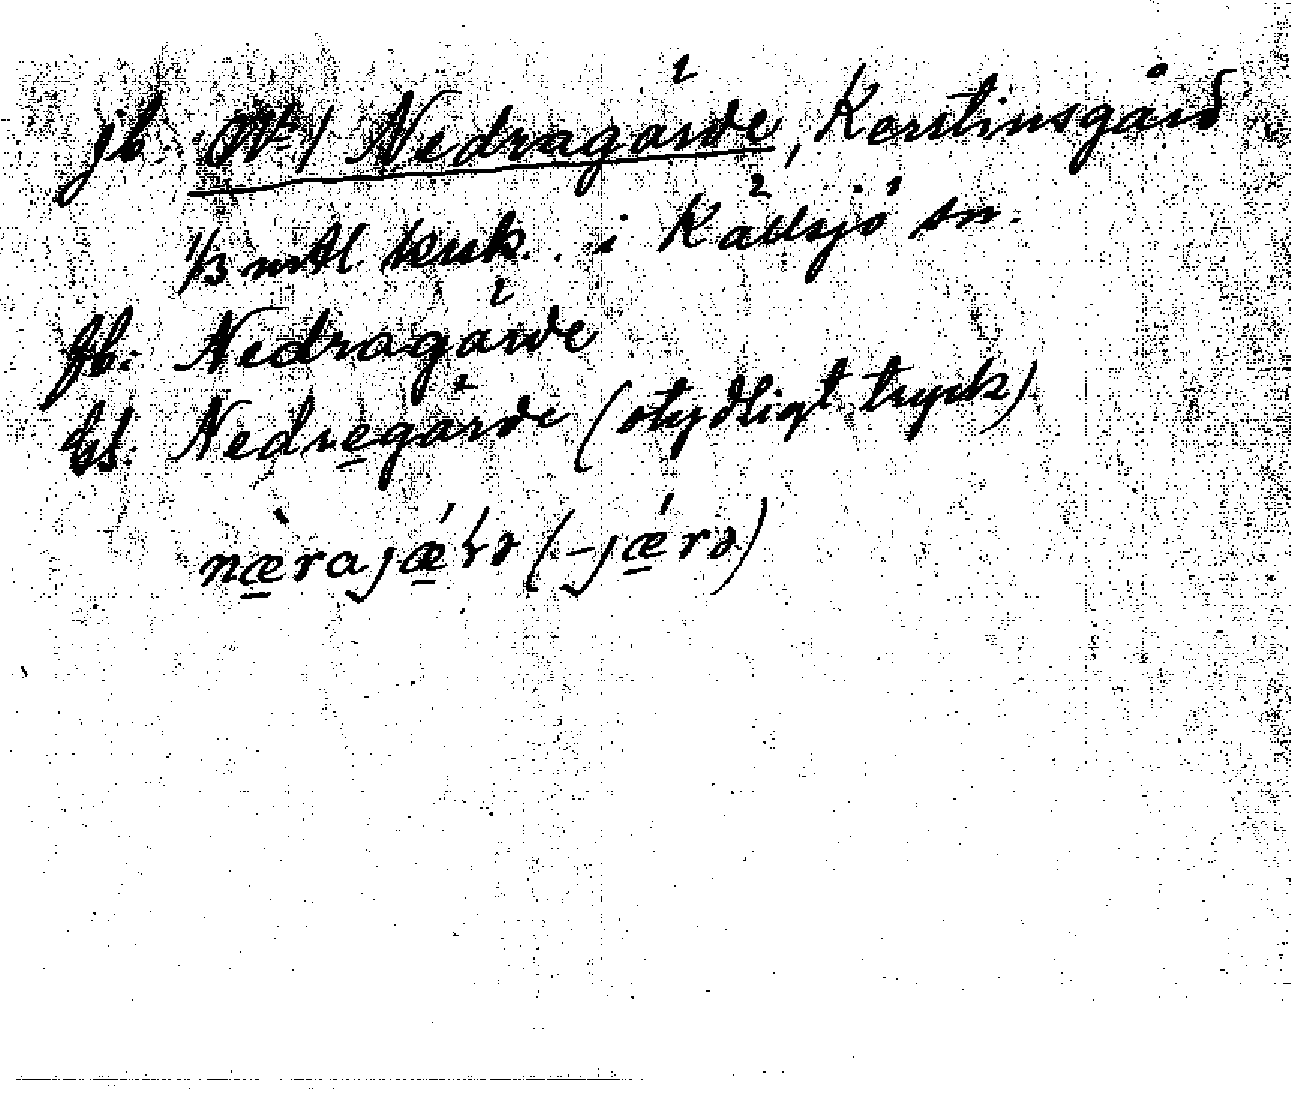 jb. No 1 Nedragärde, Kerstinsgård
1/3 mtl krsk. i Källsjö sn.
fb: Nedragärde
ks. Nedregärde (otydligt tryck)
næ̀rajǽrə (-jǽrə)